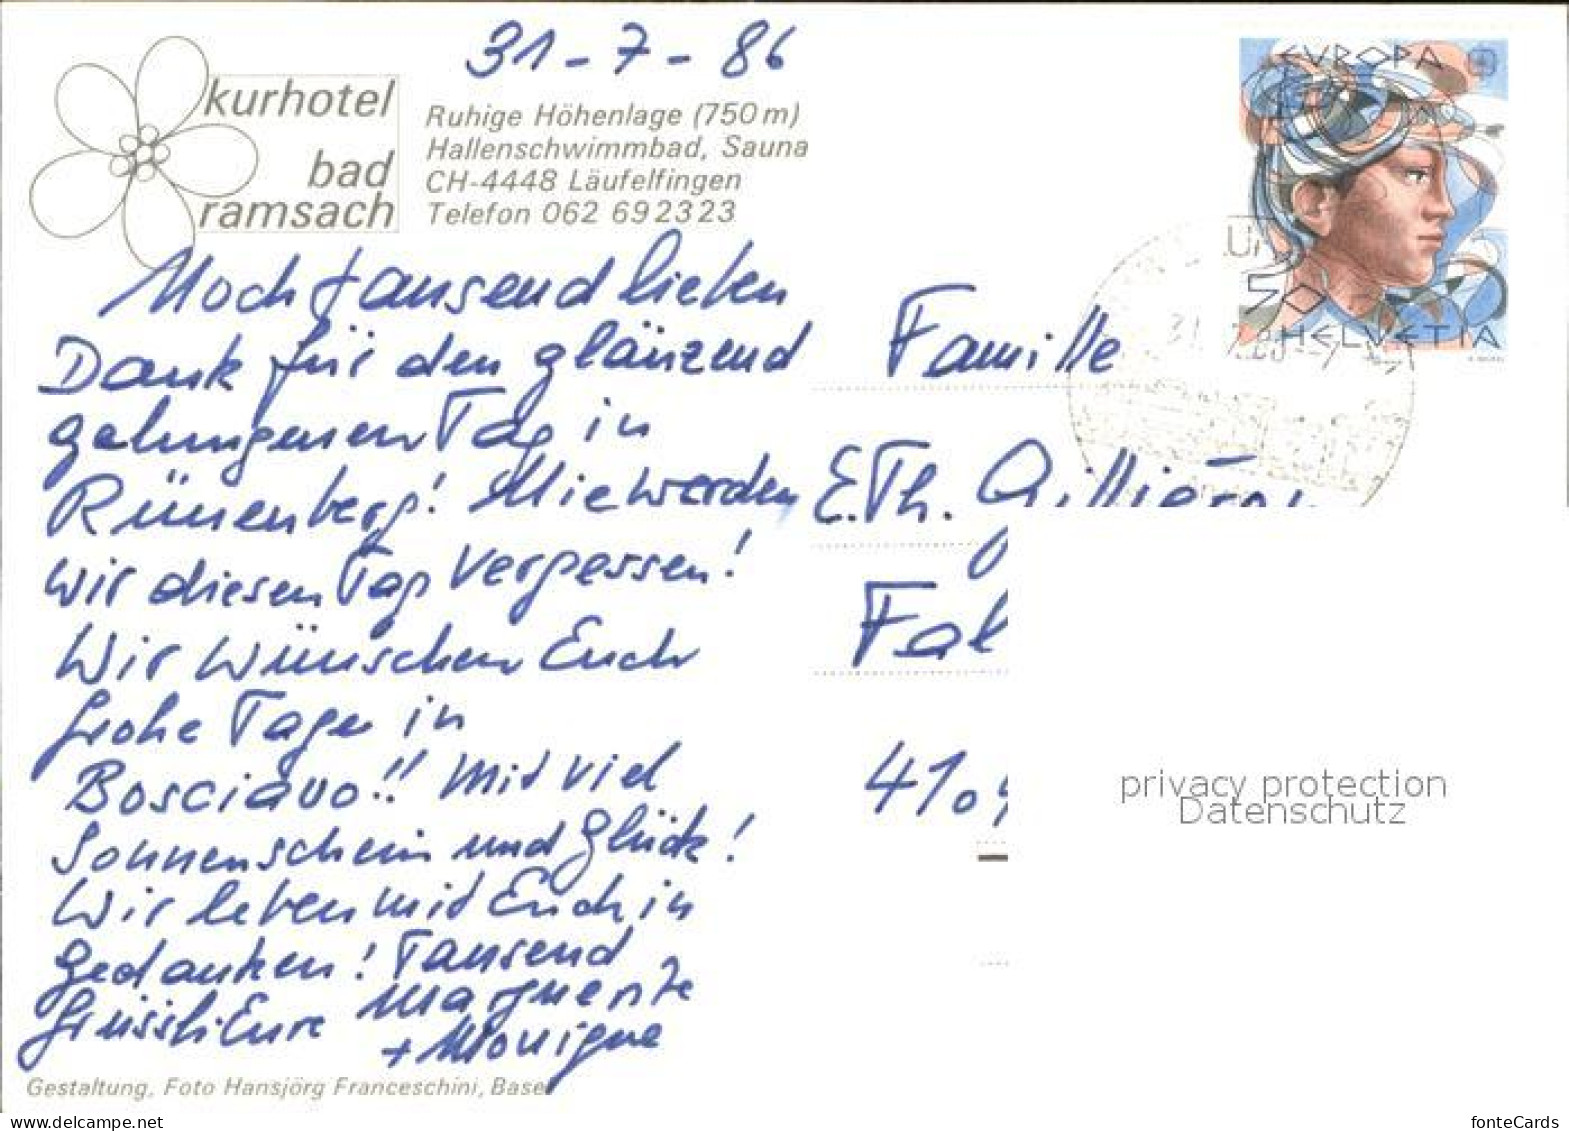 31-7-86
kurhotel
bad
ramsach
Ruhige Höhenlage (750m)
Hallenschwimmbad, Sauna
CH-4448 Läufelfingen
Telefon 062 692323
Noch tausend lieben
Dank für den glänzend
gelungenen Tag in
Rünenberg! Nie werden
wir diesen Tag vergessen!
Wir wünschen Euch
frohe Tage in
Bosciavo!! Mit viel
Sonnenschein und Glück!
Wir leben mit Euch in
Gedanken! Tausend
Grüssli Eure Marguerite
+ Monique
Gestaltung, Foto Hansjörg Franceschini, Basel
EUROPA
50
HELVETIA
31. 7.86
Familie
E.Th.
410
privacy protection
Datenschutz
www.ansichtskartenversand.com
fonteCards